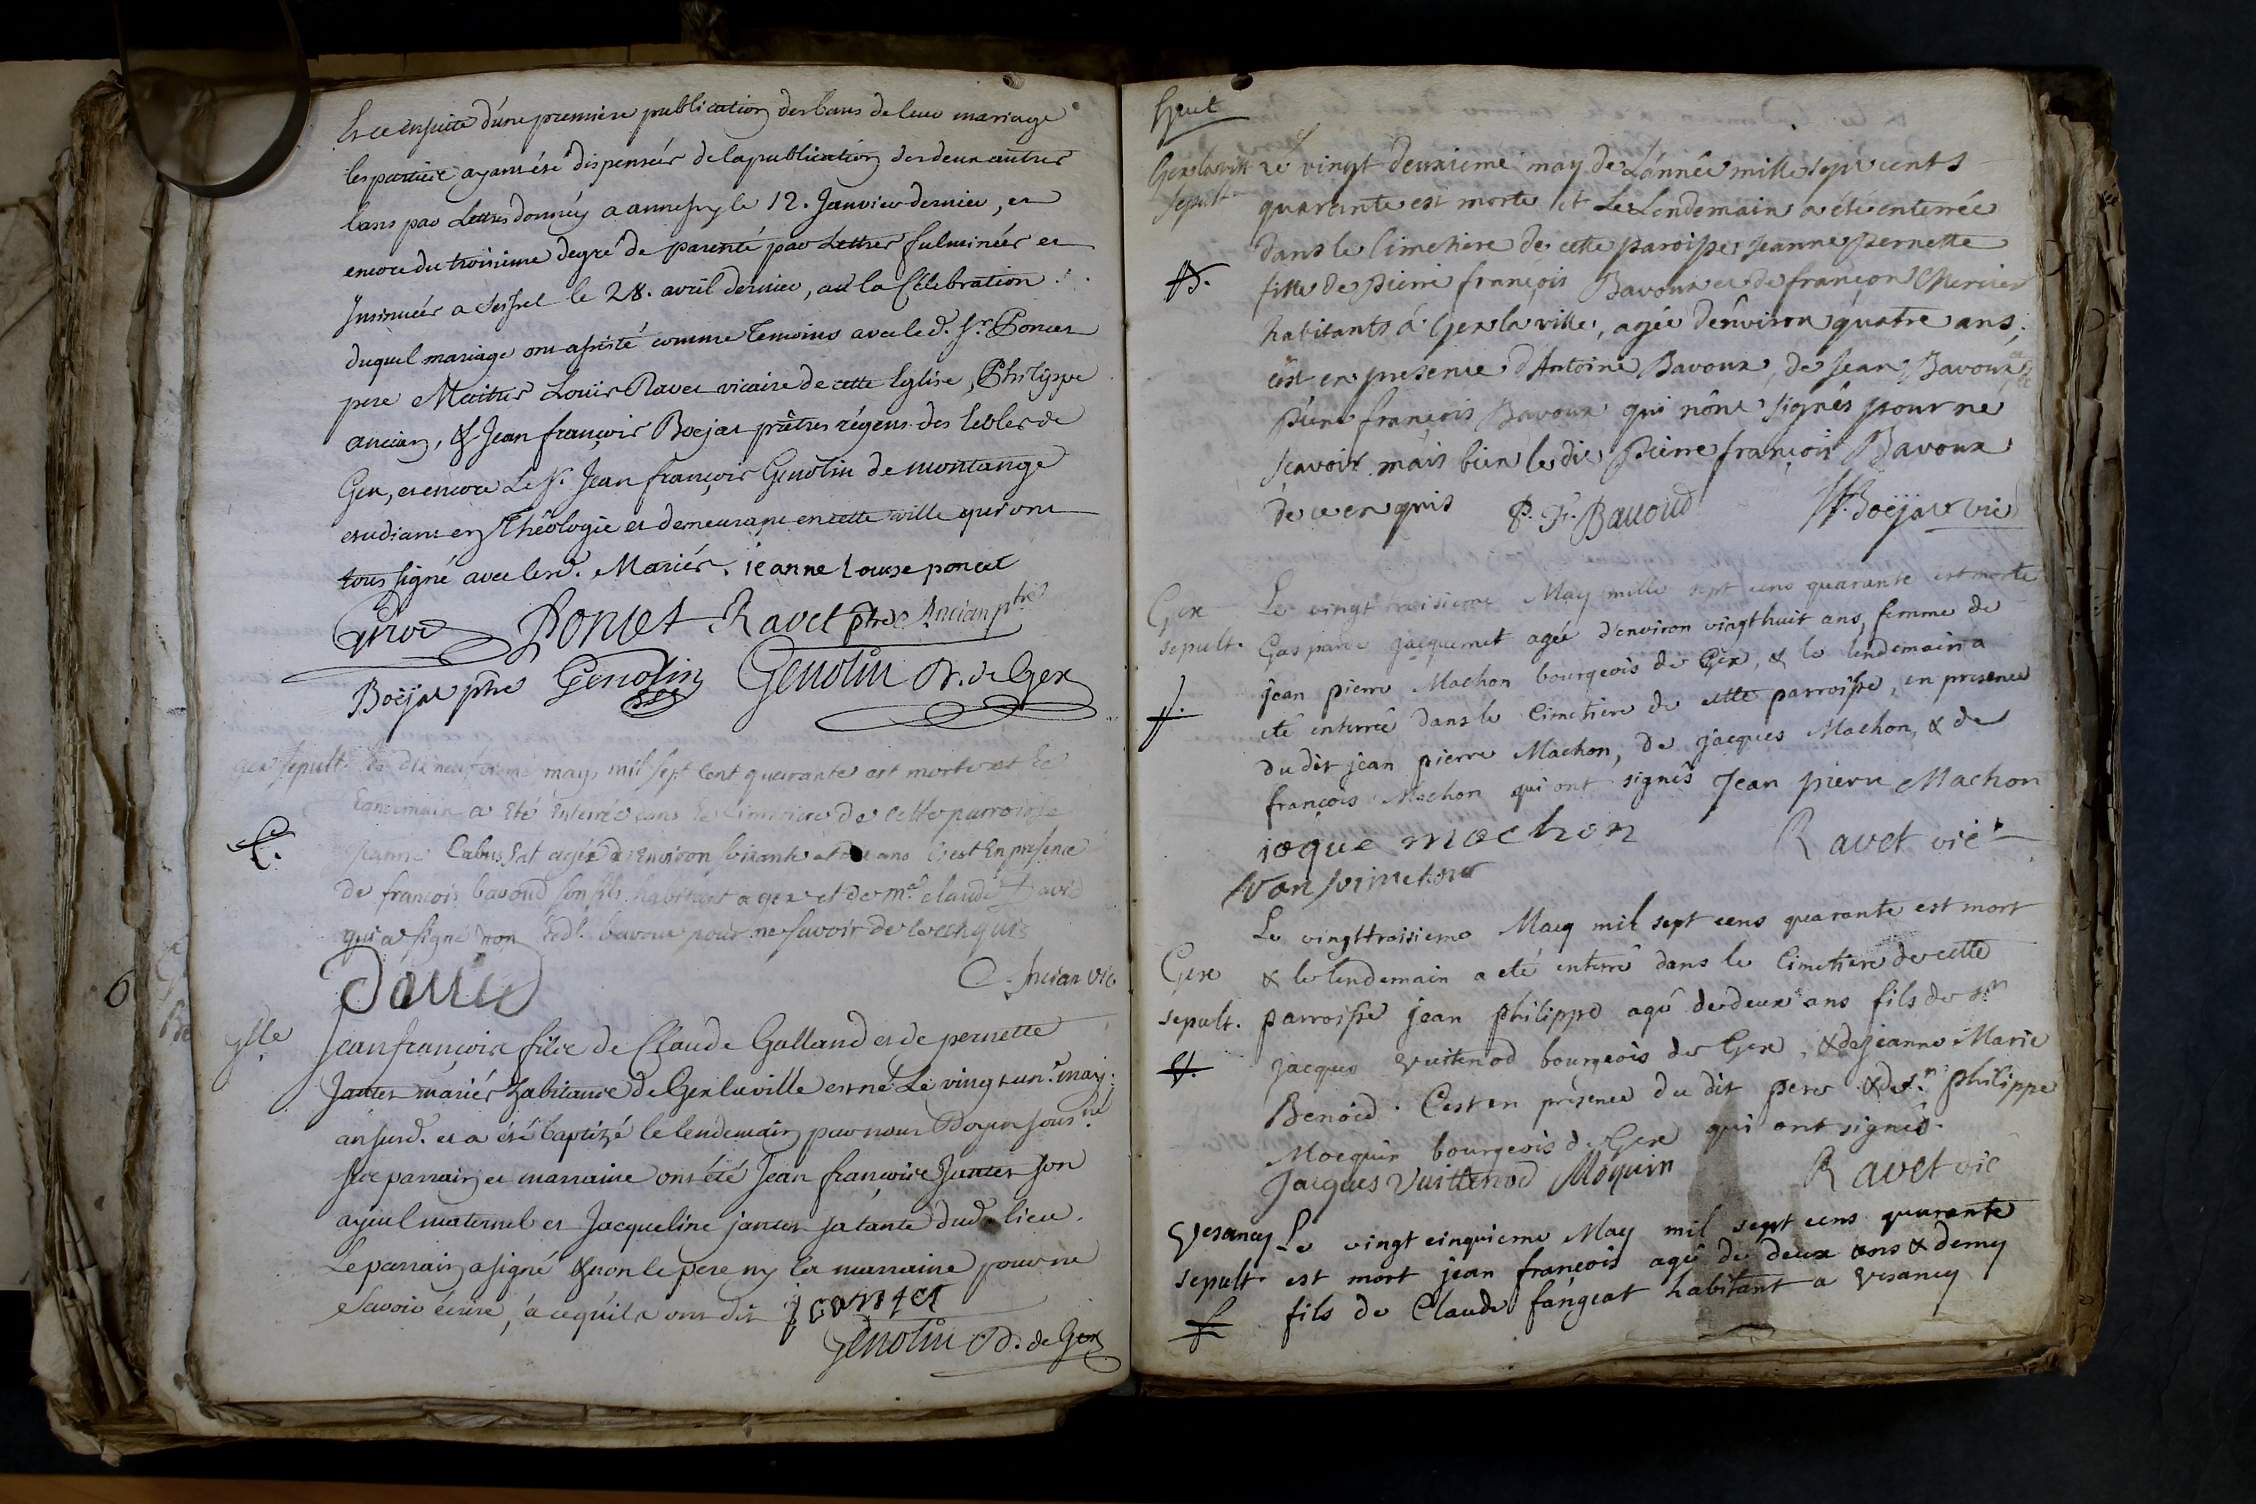 Et ce ensuite d'une premiere publication des bans de leur mariage
les parties ayans été dispensées de la publication des deux autres
bans par Lettres données a annessy le 12. Janvier dernier, et
encore du troisieme degré de parenté par Lettres fulminées et
Insinuées a Seissel le 28. avril dernier, a la Célébration
duquel mariage ont assisté comme temoins avec led. Sr. Poncet
pere Maitres Louis Ravet vicaire de cette Eglise, Philippe
ancian, & Jean françois Boejat prêtres régens des Ecoles de
Gex, et encore Le Sr. Jean françois Genolin de montange
etudiant en Théologie et demeurant en cette ville qui ont
tous signé avec lesd. Mariés. jeanne Louise poncet
Girod Ponset Ravet ptre Ancian ptre
Boëjat ptre Genolin Genolin D. de Gex
gex sepult. Le dix neufieme may mil sept Cent quarante est morte et le
Landemain a Eté Enterrée dans le Cimetiere de cette parroisse
Jeanne agée d'Environ soixante et ans C'est En presence
de françois bavoud son fils habitant a gex et de me. claude David
qui a signé non led. bavoux pour ne savoir de ce enquis
David Ancian vic
Jean françois fils de Claude Galland et de pernette
Jantet mariés habitants de Gex la ville est né Le vingt un.e may
an susd. et a été baptizé le lendemain par nous Doyen sous.né
ses parrain et marraine ont été Jean françois Jantet son
ayeul maternel et Jacqueline jantet sa tante dud. lieu.
Le parrain a signé & non le pere ny la marraine pour ne
scavoir écrire, a ce qu'ils ont dit j cantet
Genolin D. de Gex
Huit
Gex la ville Le vingt deuxieme may de L'année mille sept cents
sepult. quarante est morte et Le Lendemain a été enterrée
dans le Cimetiere de cette paroisse jeanne pernette
fille de pierre françois Bavoux et de françon Mercier
habitants à Gex la ville, agée d'environ quatre ans
c'est en presence d'Antoine Bavoux, de Jean Bavoux et de
Pierre françois Bavoux qui n'ont signés pour ne
sçavoir mais bien le dit Pierre françois Bavoux
de ce enquis P. F. Bauoud Boëjat vic
Gex Le vingt troisieme May mille sept cens quarante est morte
sepult. Gasparde jacquemet agée d'environ vingt huit ans, femme de
jean pierre Machon bourgeois de Gex, & le lendemain a
eté enterrée dans le Cimetiere de cette parroisse, en presence
du dit jean pierre Machon, de jacques Machon, & de
françois Machon qui ont signés Jean pierre Machon
jaque machon Ravet vic
Le vingt troisieme May mil sept cens quarante est mort
Gex & le lendemain a eté enterré dans le Cimetiere de cette
sepult. parroisse jean philippe agé de deux ans fils de Sr.
jacques vuitenod bourgeois de Gex, & de jeanne Marie
Benoid. C'est en présence du dit pere & de Sr. philippe
Mocquin bourgeois de Gex qui ont signés.
Jacques Vuittenod Moquin Ravet vic
Vesancy Le vingt cinquieme May mil sept cens quarante
sepult. est mort jean françois agé de deux ans & demy
fils de Claude fangeat habitant a vesancy